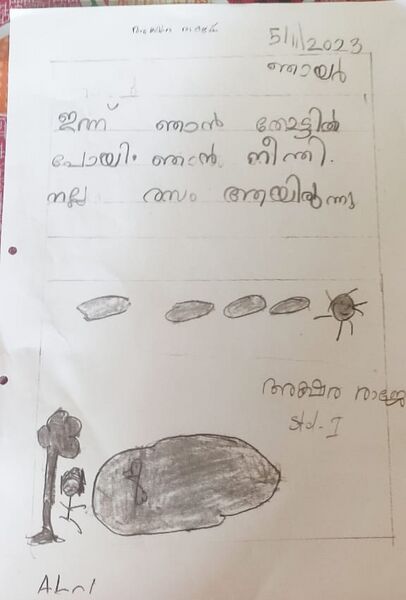 5/11/2023
ഞായർ
ഇന്ന് ഞാൻ തോട്ടിൽ
പോയി. ഞാൻ. നീന്തി.
നല്ല രസം ആയിരുന്നു
അക്ഷര രാജേ
Std - II